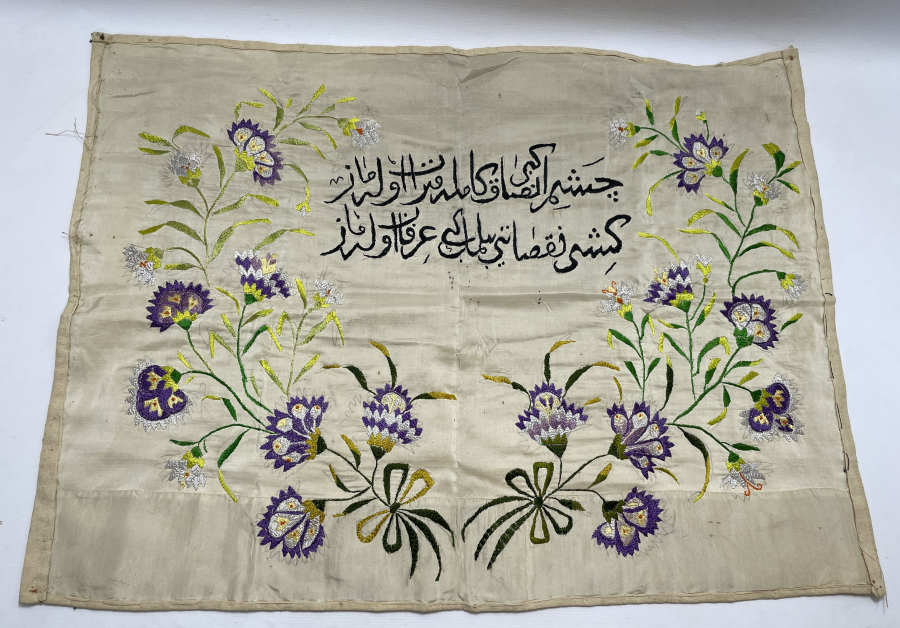 چشم انصاف كبی كامله میزان اولماز
كشی نقصاننی بیلمك كبی عرفان اولماز